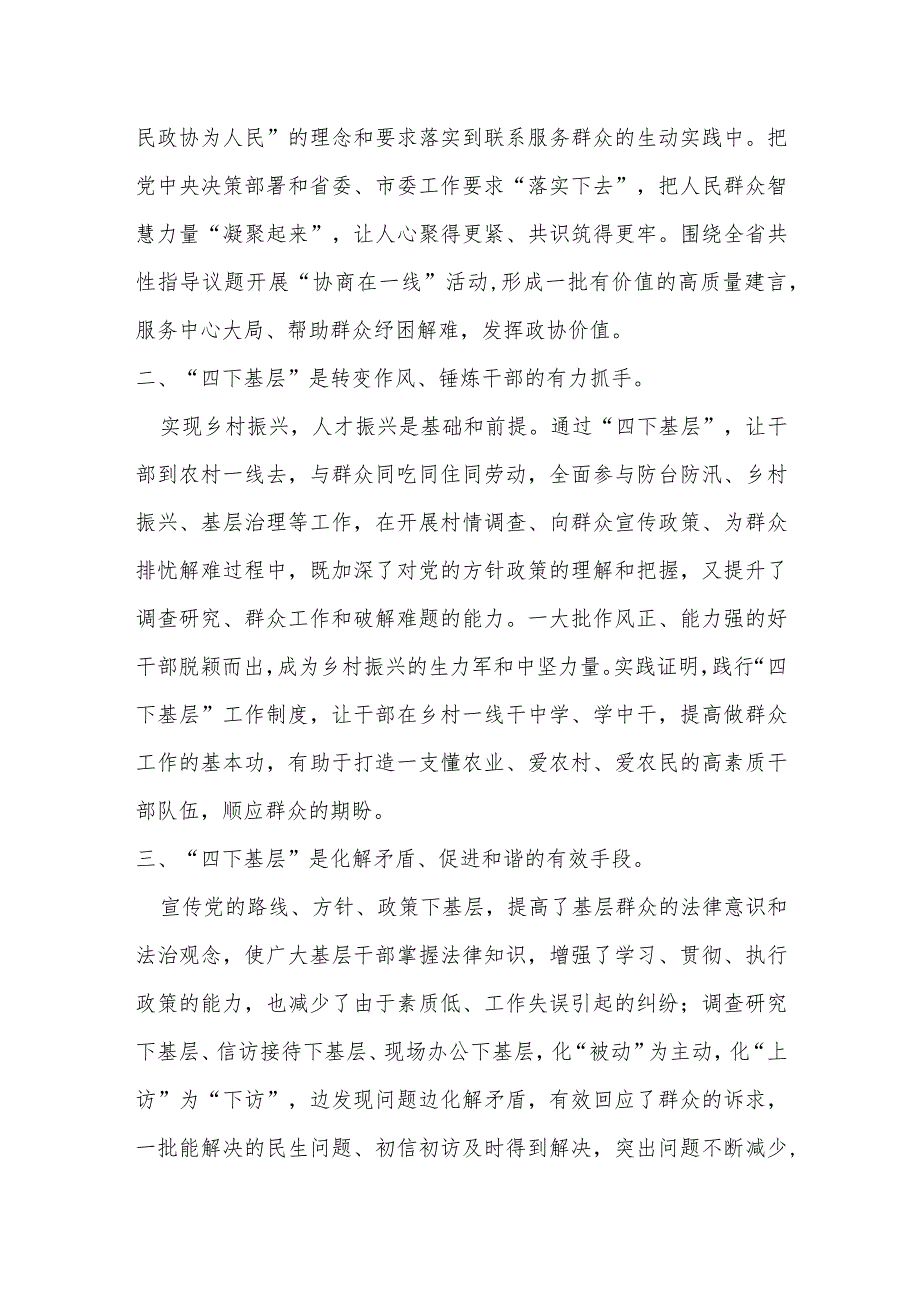 民政协为人民”的理念和要求落实到联系服务群众的生动实践中。把
党中央决策部署和省委、市委工作要求“落实下去”，把人民群众智
慧力量“凝聚起来”，让人心聚得更紧、共识筑得更牢。围绕全省共
性指导议题开展“协商在一线”活动,形成一批有价值的高质量建言,
服务中心大局、帮助群众纾困解难，发挥政协价值。
二、“四下基层”是转变作风、锤炼干部的有力抓手。
实现乡村振兴，人才振兴是基础和前提。通过“四下基层”，让干
部到农村一线去，与群众同吃同住同劳动，全面参与防台防汛、乡村
振兴、基层治理等工作，在开展村情调查、向群众宣传政策、为群众
排忧解难过程中，既加深了对党的方针政策的理解和把握，又提升了
调查研究、群众工作和破解难题的能力。一大批作风正、能力强的好
干部脱颖而出,成为乡村振兴的生力军和中坚力量。实践证明,践行“四
下基层”工作制度，让干部在乡村一线干中学、学中干，提高做群众
工作的基本功，有助于打造一支懂农业、爱农村、爱农民的高素质干
部队伍，顺应群众的期盼。
三、“四下基层”是化解矛盾、促进和谐的有效手段。
宣传党的路线、方针、政策下基层，提高了基层群众的法律意识和
法治观念，使广大基层干部掌握法律知识，增强了学习、贯彻、执行
政策的能力，也减少了由于素质低、工作失误引起的纠纷；调查研究
下基层、信访接待下基层、现场办公下基层,化“被动”为主动,化“上
访”为“下访”，边发现问题边化解矛盾，有效回应了群众的诉求，
一批能解决的民生问题、初信初访及时得到解决，突出问题不断减少,